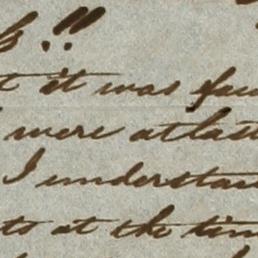 !!
it was
were at last
I understan
at the tim